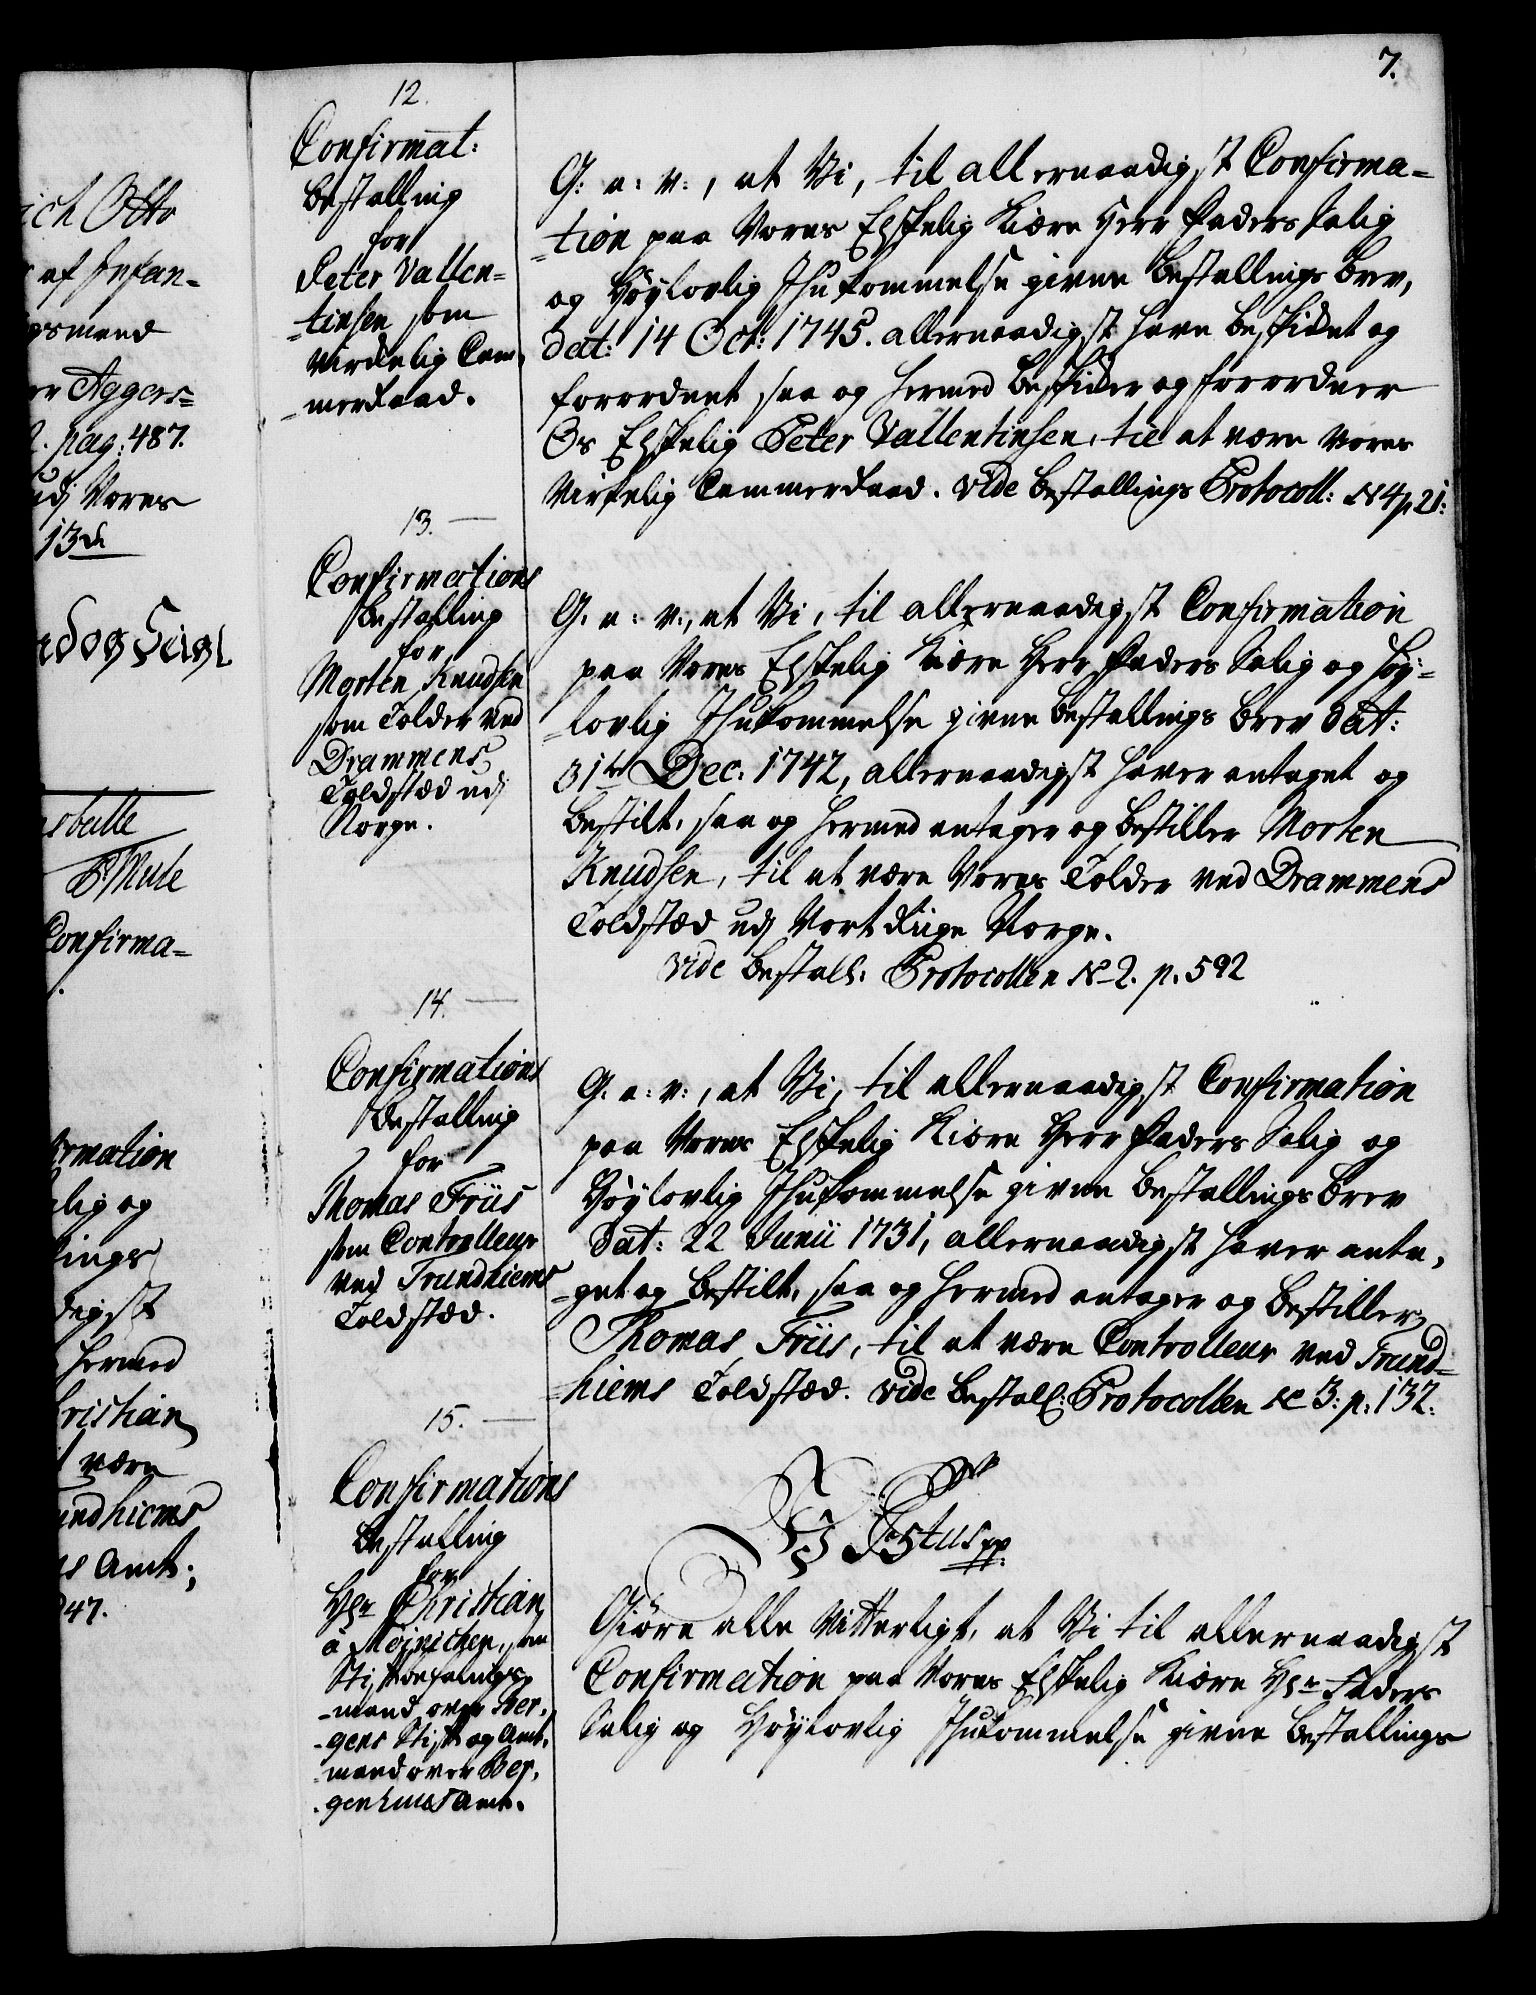 7.
ich Otto
af Infan-
gsmand
er Aggers-
2. pag: 487.
udj Vores
13de
d og Seigl
sbulle
Mule
Confirma-
rmation
lig og
lings
digst
hermed
hristian
t være
undhiems
s Amt;
947.
12.
Confirmat:
Bestalling
for
Peter Vallen-
-tinsen som
Virckelig Cam,
-merRaad.
G: a: v:, at Vi, til allernaadigst Confirma-
-tion paa Vores Elskelig Kiere Herr Faders Salig
og Høylovlig Ihukommelse givne Bestallings Brev,
dat: 14 Oct: 1745. allernaadigst have beskikket og
forordnet, saa og hermed beskikker og forordner
Os Elskelig Peter Vallentinsen, til at være Vores
Virkelig CammerRaad. vide Bestallings Protocoll: No 4 p 21:
13.
Confirmations
Bestalling
for
Morten Knudsen
som Tolder ved
Drammens
Toldsted udj
Norge.
G. a: v:, at Vi, til allernaadigst Confirmation
paa Vores Elskelig Kiære Herr Faders Salig og Høy-
-lovlig Ihukommelse givne Bestallings Brev dat:
31te Dec: 1742, allernaadigst haver antaget og
bestilt, saa og hermed antager og bestiller Morten
Knudsen, til at være Vores Tolder ved Drammens
Toldsted udj Vort Riige Norge.
vide Bestall: Protocollen No 2. p. 592
14.
Confirmations
Bestalling
for
Thomas Friis
som Controlleur
ved Trundhiems
Toldsted.
G. a: v:, at Vi, til allernaadigst Confirmation
paa Vores Elskelig Kiære Herr Faders Salig og
Høylovlig Ihukommelse givne Bestallings Brev
dat: 22 Junii 1731, allernaadigst haver anta,
-get og bestilt, saa og hermed antager og bestiller
Thomas Friis, til at være Controlleur ved Trund-
-hiems Toldsted. vide Bestall: Protocollen No 3: p: 132:
15.
Confirmations
Bestalling
for
Hr Christian
a Møinichen, som
Stiftbefalings-
-mand over Ber,
-gens Stift og Amt,
-mand over Ber,
-genhuus Amt.
Wj F5tus pp
Giøre alle vitterligt, at Vi til allernaadigst
Confirmation paa Vores Elskelig Kiære Hr Faders
Salig og Høylovlig Ihukommelse givne Bestallings